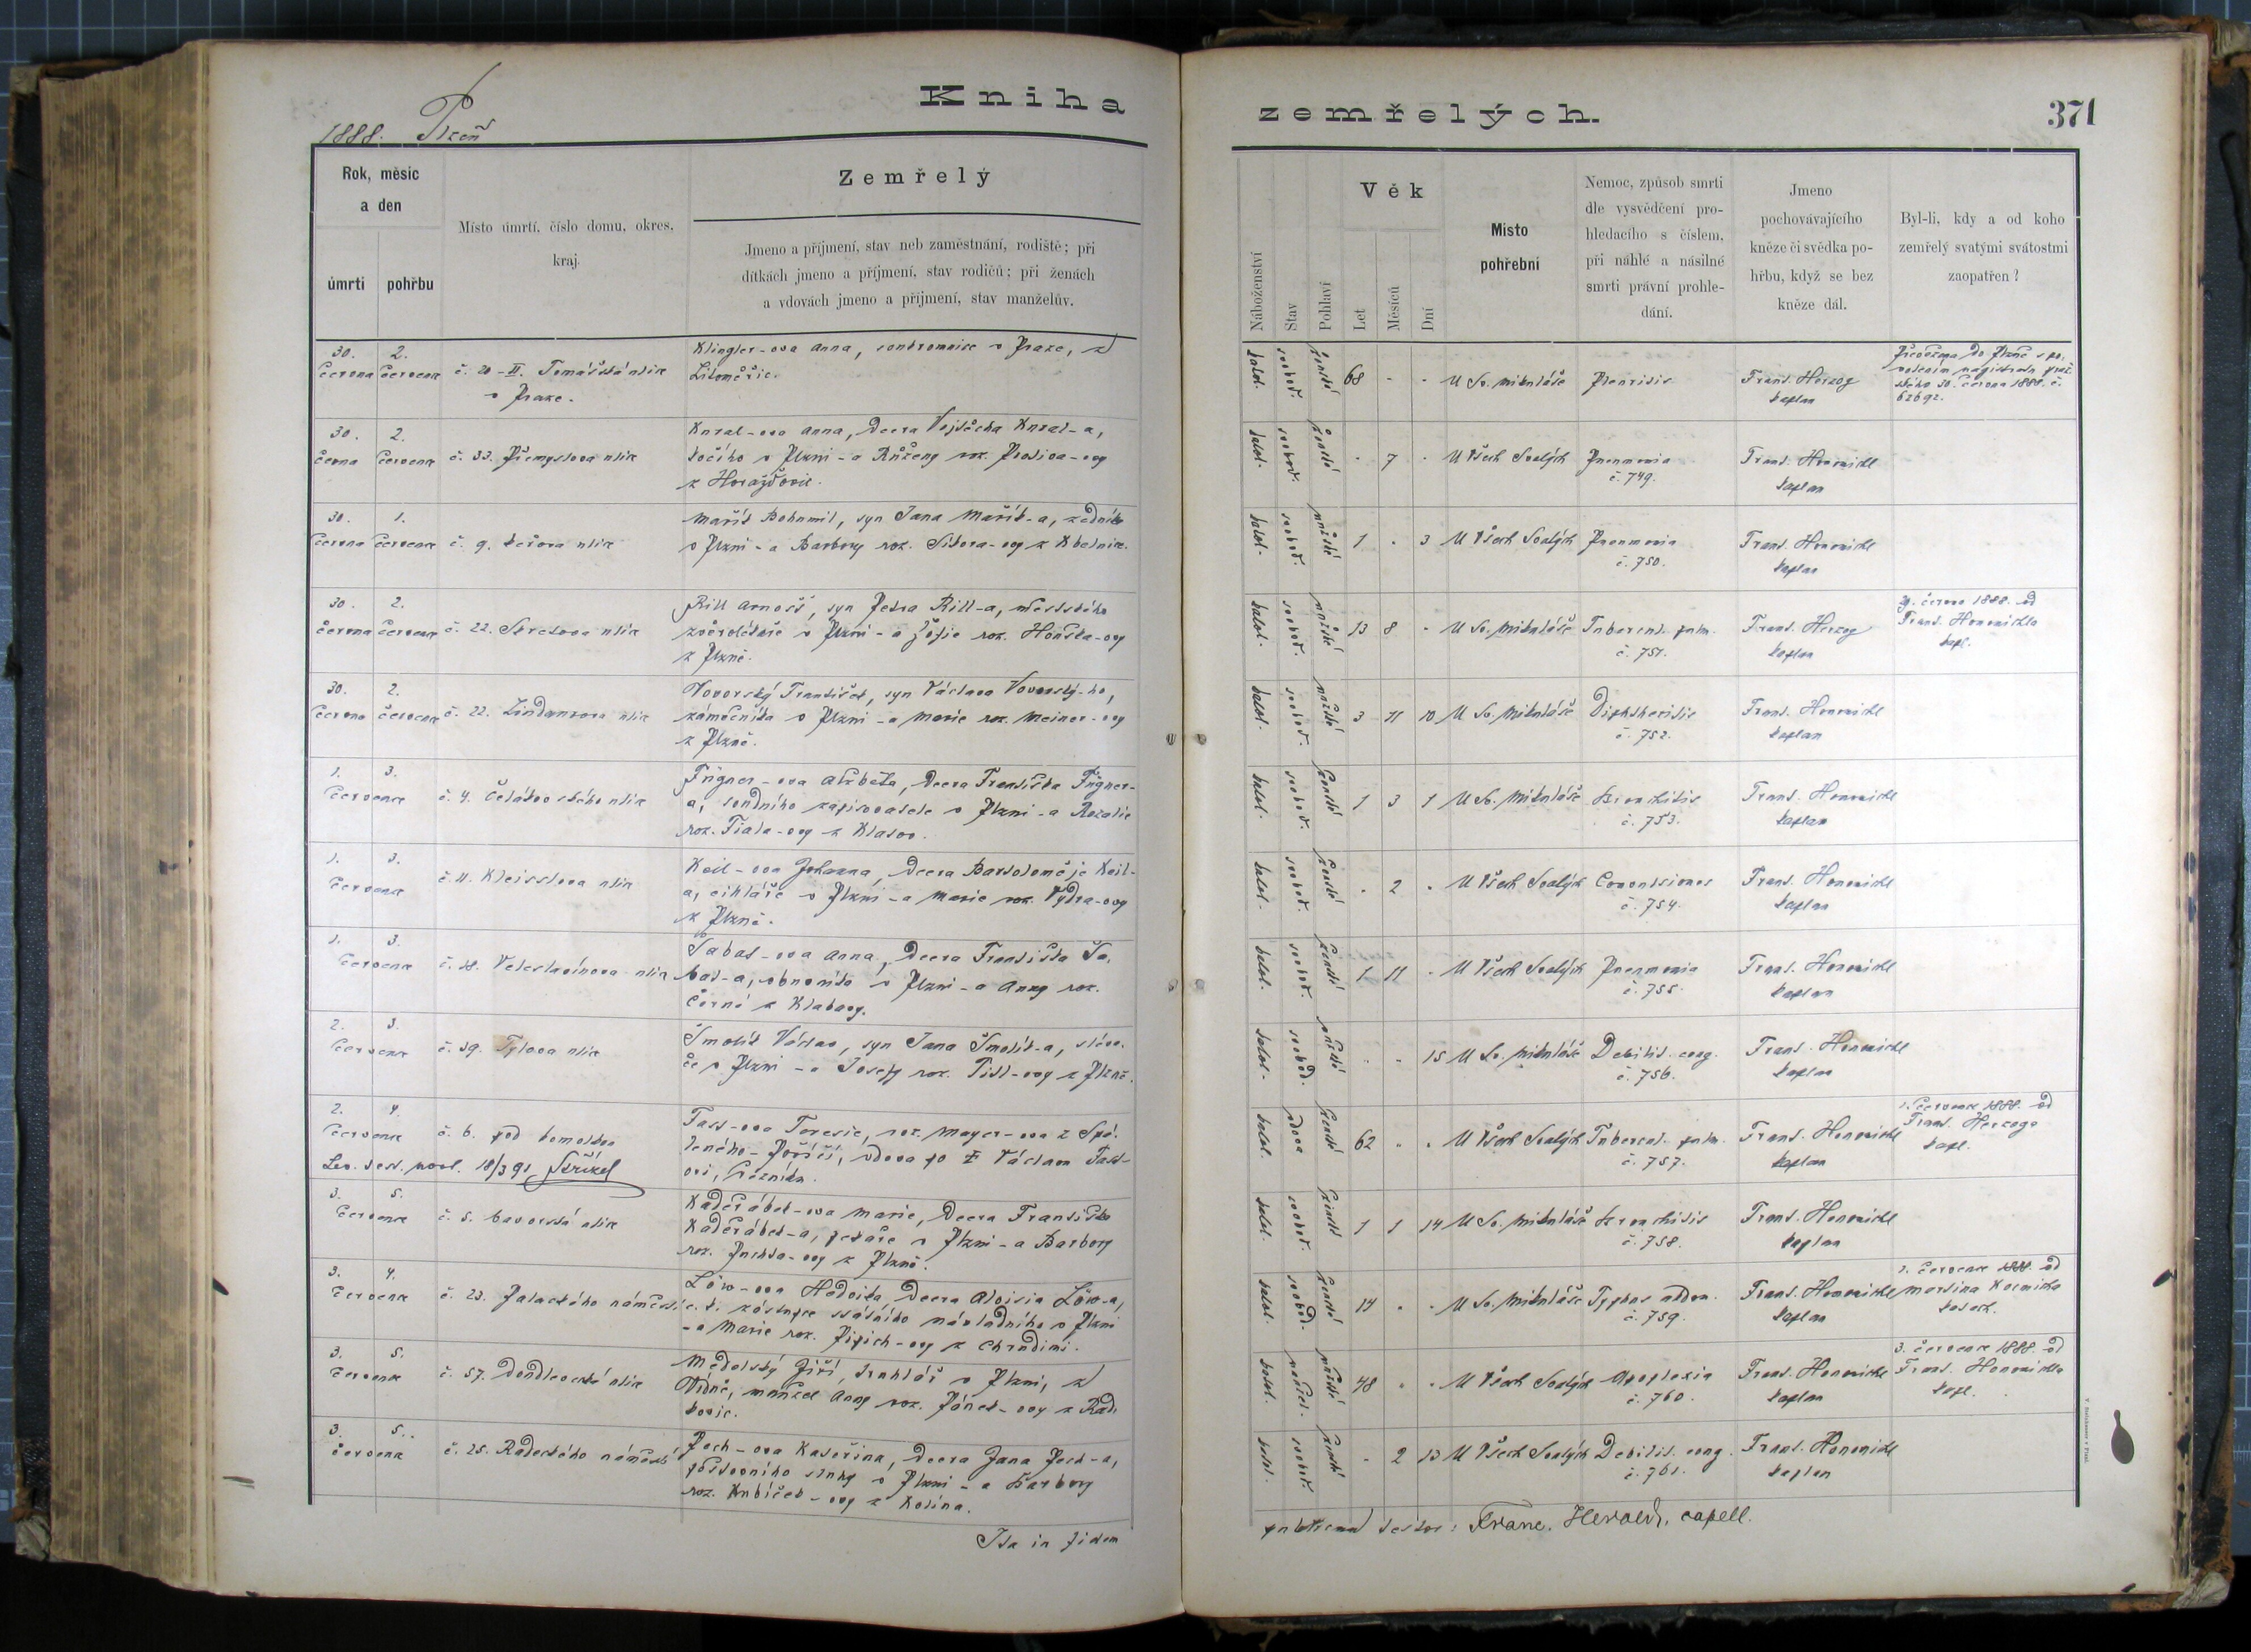 Kniha
1888. Plzeň
Rok, měsíc
a den
úmrtí
pohřbu
Místo úmrtí, číslo domu, okres,
kraj.
Zemřelý
Jmeno a příjmení, stav neb zaměstnání, rodiště; při
dítkách jmeno a příjmení, stav rodičů; při ženách
a vdovách jmeno a příjmení, stav manželův.
30. 2.
června července č. 20-II. Tomášská ulice
v Praze.
Klingler-ova Anna, soukromnice v Praze, z
Litoměřic.
30. 2.
června července č. 33. Přemyslova ulice
Kural-ova Anna, dcera Vojtěcha Kural-a,
kočího v Plzni - a Růženy roz. Protiva-ovy
z Horažďovic.
30. 1.
června července č. 9. ulice
Mařík Bohumil, syn Jana Mařík-a, zedníka
v Plzni - a Barbory roz. Sikora-ovy z Kbelnice.
30. 2.
června července č. 22. Skretova ulice
Rill Arnošt, syn Petra Rill-a, městského
zvěrolékaře v Plzni - a Žofie roz. Houška-ovy
z Plzně.
30. 2.
června července č. 22. Lindaurova ulice
Vovorský František, syn Václava Vovorský-ho,
zámečníka v Plzni - a Marie roz. Meiner-ovy
z Plzně.
1. 3.
července č. 4. Čelakovského ulice
Frigner-ova Alžběta, dcera Františka Frigner-
a, soudního zapisovatele v Plzni - a Rozalie
roz. Fiala-ovy z Klatov.
1. 3.
července č. 11. Kleisslova ulice
Keil-ova Johanna, dcera Bartoloměje Keil-
a, cihláře v Plzni - a Marie roz. Vydra-ovy
z Plzně.
1. 3.
července č. 18. Veleslavínova ulice
Šabat-ova Anna, dcera Františka Ša-
bat-a, obuvníka v Plzni - a Anny roz.
Černé z Klabavy.
2. 3.
července č. 39. Tylova ulice
Šmolík Václav, syn Jana Šmolík-a, sléva-
če v Plzni - a Josefy roz. Pitl-ovy z Plzně.
2. 4.
července č. 6. pod
18/3 91
Tass-ova Teresie, roz. Mayer-ova z Spá-
leného-Poříčí, vdova po Václavu Tass-
ovi, řezníku.
3. 5.
července č. 5. Bavorská ulice
Kadeřábek-ova Marie, dcera Františka
Kadeřábek-a, pekaře v Plzni - a Barbory
roz. Puchta-ovy z Plzně.
3. 4.
července č. 23. Palackého náměstí
Löw-ova Hedvika dcera Aloisia Löw-a,
c. k. zástupce státního návladního v Plzni
- a Marie roz. Pipich-ovy z Chrudimi.
3. 5.
července č. 57. Doudlevecká ulice
Medelský Jiří, truhlář v Plzni, z
Vídně, manžel Anny roz. Pánek-ovy z Rad-
kovic.
3. 5.
července č. 25. Radeckého náměstí
Pech-ova Kateřina, dcera Jana Pech-a,
poštovního sluhy v Plzni - a Barbory
roz. Kubíček-ovy z Kolína.
Ita in fidem
zemřelých.
371
Náboženství
Stav
Pohlaví
Věk
Let
Měsíců
Dní
Místo
pohřební
Nemoc, způsob smrti
dle vysvědčení pro-
hledacího s číslem,
při náhlé a násilné
smrti právní prohle-
dání.
Jmeno
pochovávajícího
kněze či svědka po-
hřbu, když se bez
kněze dál.
Byl-li, kdy a od koho
zemřelý svatými svátostmi
zaopatřen?
katol. svobod. ženské 68 - - U Sv. Mikuláše Pleuritis
Frant. Herzog
kaplan
Převežena do Plzně s po-
volením magistratu praž-
ského 30. června 1888. č.
62692.
katol. svobod. ženské - 7 - U Všech Svatých Pneumonia
č. 749.
Frant. Honomichl
kaplan
katol. svobod. mužské 1 - 3 U Všech Svatých Pneumonia
č. 750.
Frant. Honomichl
kaplan
katol. svobod. mužské 13 8 - U Sv. Mikuláše Tubercul. pulm.
č. 751.
Frant. Herzog
kaplan
29. června 1888. od
Frant. Honomichla
kapl.
katol. svobod. mužské 3 11 10 U Sv. Mikuláše Diphtheritis
č. 752.
Frant. Honomichl
kaplan
katol. svobod. ženské 1 3 1 U Sv. Mikuláše Bronchitis
č. 753.
Frant. Honomichl
kaplan
katol. svobod. ženské - 2 - U Všech Svatých Convulsiones
č. 754.
Frant. Honomichl
kaplan
katol. svobod. ženské 1 11 - U Všech Svatých Pneumonia
č. 755.
Frant. Honomichl
kaplan
katol. svobod. mužské - - 15 U Sv. Mikuláše Debilit. cong.
č. 756.
Frant. Honomichl
kaplan
katol. vdova ženské 62 - - U Všech Svatých Tubercul. pulm.
č. 757.
Frant. Honomichl
kaplan
1. července 1888. od
Frant. Herzoga
kapl.
katol. svobod. ženské 1 1 14 U Sv. Mikuláše Bronchitis
č. 758.
Frant. Honomichl
kaplan
katol. svobod. ženské 14 - - U Sv. Mikuláše Typhus abdom.
č. 759.
Frant. Honomichl
kaplan
2. července 1888. od
Martina
katech.
katol. ženat. mužské 48 - - U Všech Svatých Apoplexia
č. 760.
Frant. Honomichl
kaplan
3. července 1888. od
Frant. Honomichla
kapl.
katol. svobod. ženské - 2 13 U Všech Svatých Debilit. cong.
č. 761.
Frant. Honomichl
kaplan
publicam testor: Franc. Herold, capell.